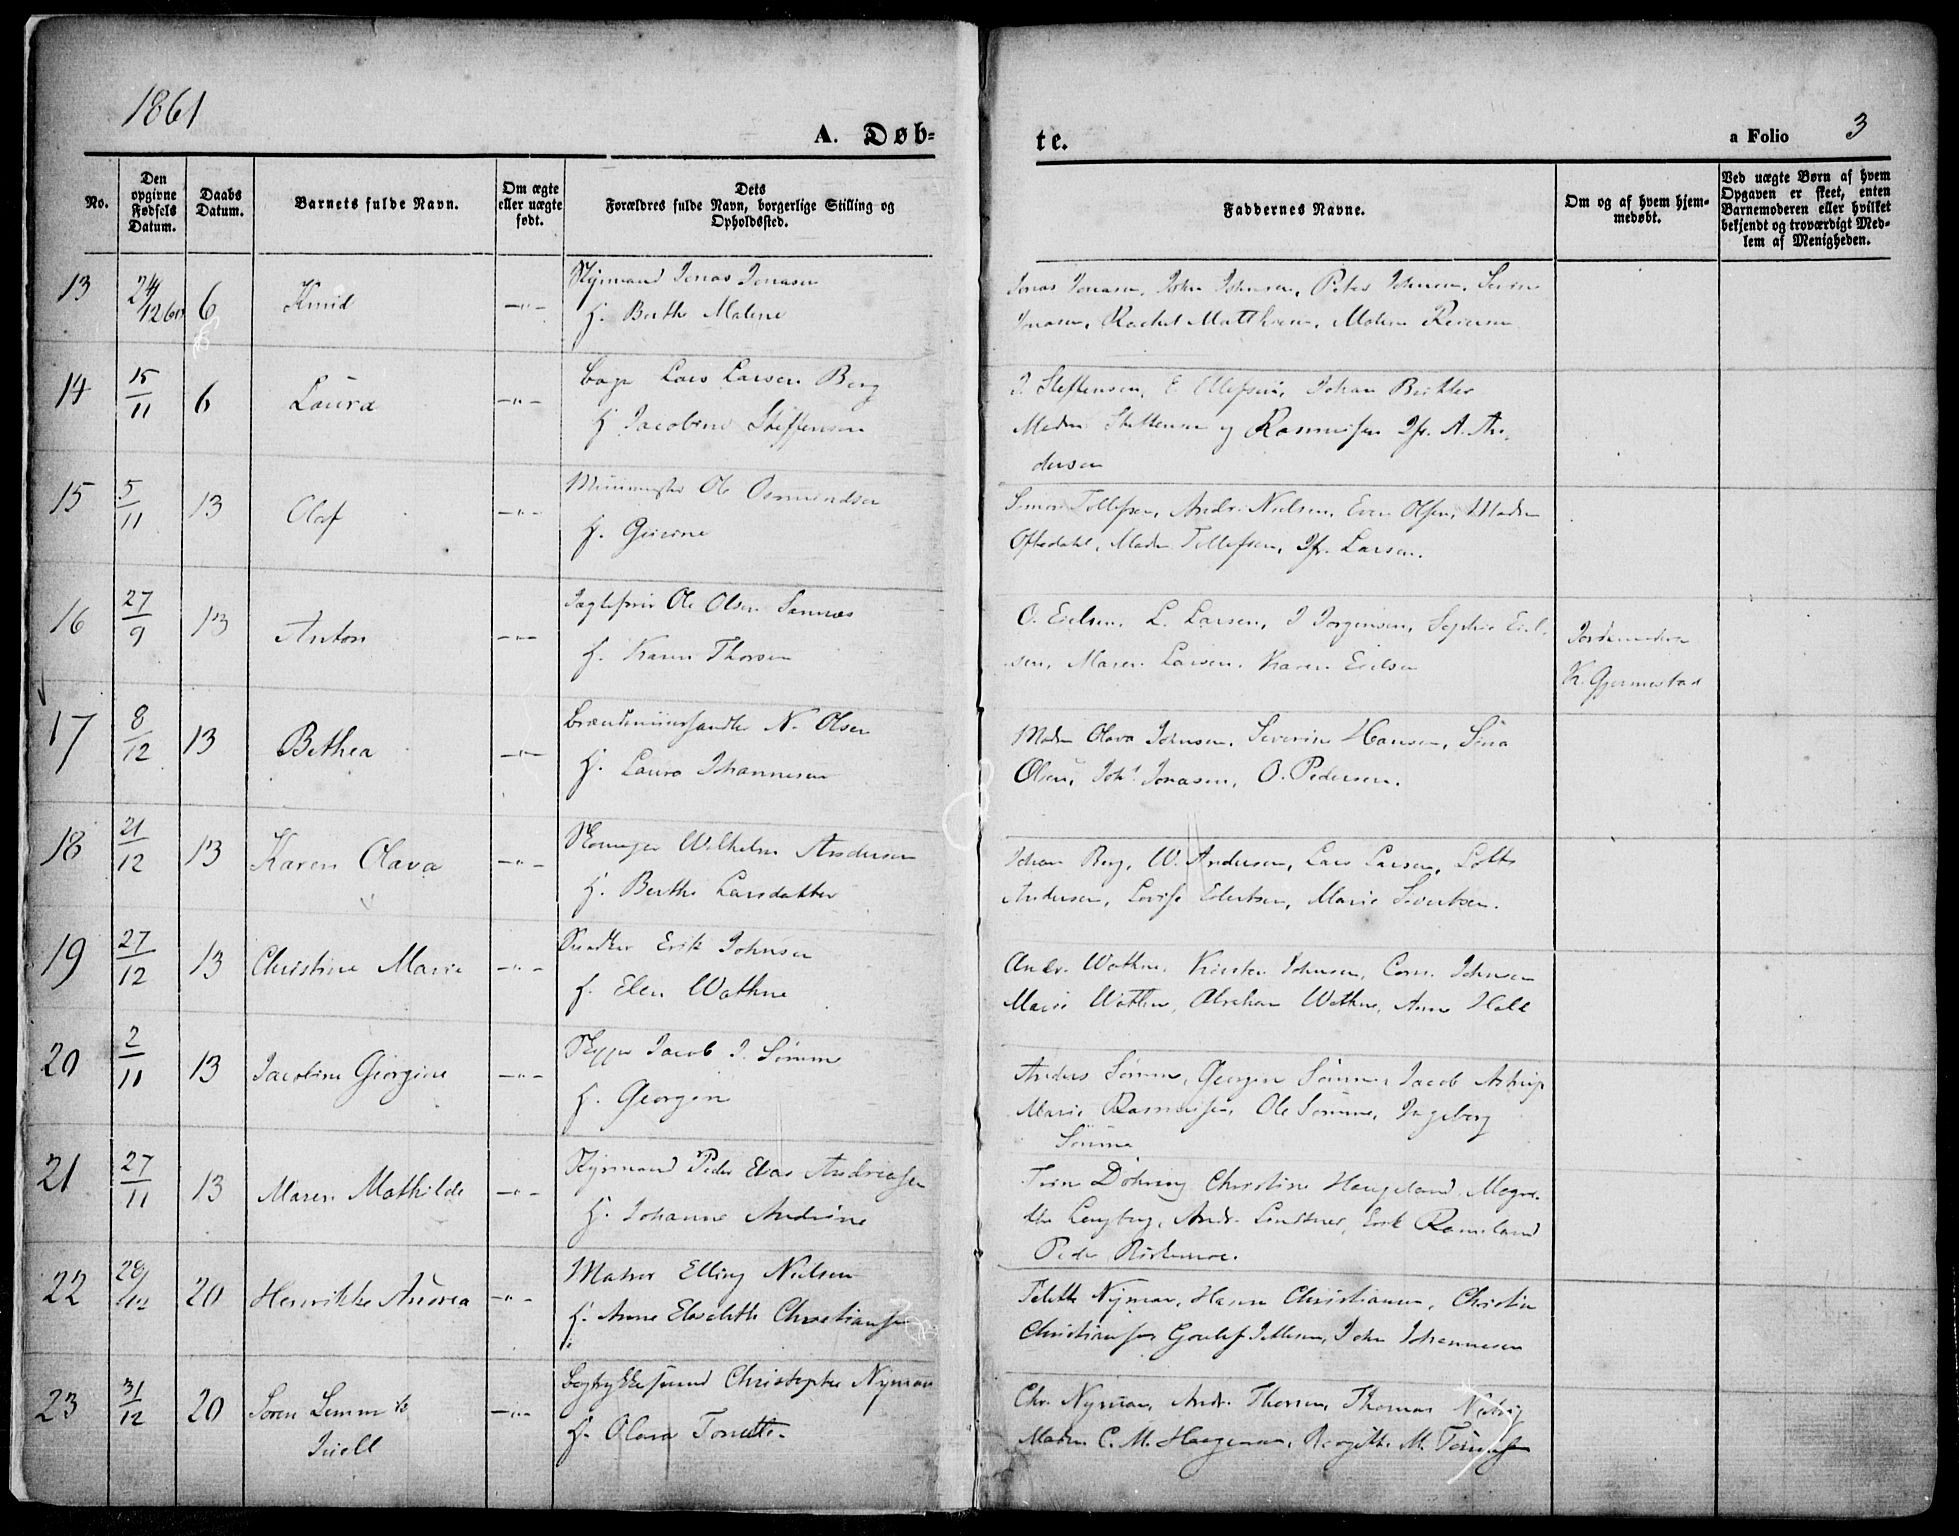 1861
A. Døb-
te.
a Folio 3
No.
Den opgivne Fødsels Datum.
Daabs Datum.
Barnets fulde Navn.
Om ægte eller uægte født.
Dets Forældres fulde Navn, borgerlige Stilling og Opholdssted.
Faddernes Navne.
Om og af hvem hjemmedøbt.
Ved uægte Børn af hvem Opgaven er skeet, enten Barnemoderen eller hvilket bekjendt og troværdigt Medlem af Menigheden.
13 24/12 60 6 Knud -"- Styrmand Jonas Jonasen
f. Berthe Malene
Jonas Jonasen, John Johnsen, Peter Johnsen, Serine
Jonasen, Rachel Matthisen, Malene Reiersen
14 15/11 6 Laura -"- Lars Larsen Berg
f. Jacobine Steffensen
J. Steffensen, E. Ellefsen, Johan
Madm Steffensen og Rasmussen Jfr. A. An-
dersen
15 5/11 13 Olaf -"- Ole Osmundsen
f. Gurine
Simon Tollefsen, Andr. Nielsen, Even Olsen, Madm
Oftedahl, Madm Tollefsen, Jfr. Larsen.
16 27/9 13 Anton -"- Ole Olsen Sannes
f. Karen Thorsen
O. Eielsen, L. Larsen, J. Jørgensen, Sophie Eiel-
sen, Maren Larsen, Karen Eielsen
Jordemoder
K. Gjermestad
17 8/12 13 Bethea -"- N. Olsen
f. Laura Johannesen
Madm Olava Johnsen, Severine Hansen, Sina
Olsen, Johs. Jonasen, O. Pedersen.
18 21/12 13 Karen Olava -"- Skomager Wilhelm Andersen
f. Berthe Larsdatter
Johan Berg, W. Andersen, Lars Larsen, Lotte
Andersen, Lovise Edertsen, Marie Sivertsen.
19 27/12 13 Christine Marie -"- Snedker Erik Johnsen
f. Elen Wathne
Andr. Wathne, Kirsten Johnsen, Corn. Johnsen
Marie Wathne, Abraham Wathne, Anne
20 2/11 13 Jacobine Giorgine -"- Skipper Jacob J. Sømme
f. Georgine
Anders Sømme, Georgine Sømme, Jacob Astrup
Marie Rasmussen, Ole Sømme, Ingeborg
Sømme
21 27/11 13 Maren Mathilde -"- Styrmand Peder Elias Andreasen
f. Johanne Andrine
Døhring Christine Haugeland, Magre-
the Lengberg, Andr. Lindtner, Erik Ramsland
Peder
22 28/12 20 Henrikke Andrea -"- Matros Elling Nielsen
f. Anne Elisabeth Christiansen
Nyman, Hanne Christiansen, Christine
Christiansen, John Johannesen
23 31/12 20 Søren Lemmik
Juell -"- Bogtrykkersvend Christopher Nyman
f. Olava Tonette
Chr. Nyman, Andr. Thorsen, Thomas
Madm C. M. Haagensen, Bergitte M.